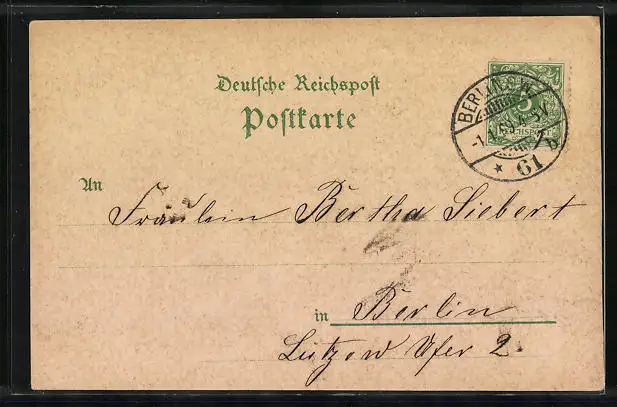 Deutsche Reichspost
Postkarte
BERLIN S.W.
61 b
An
Fräulein Bertha Siebert
in Berlin
Lützow Ufer 2.